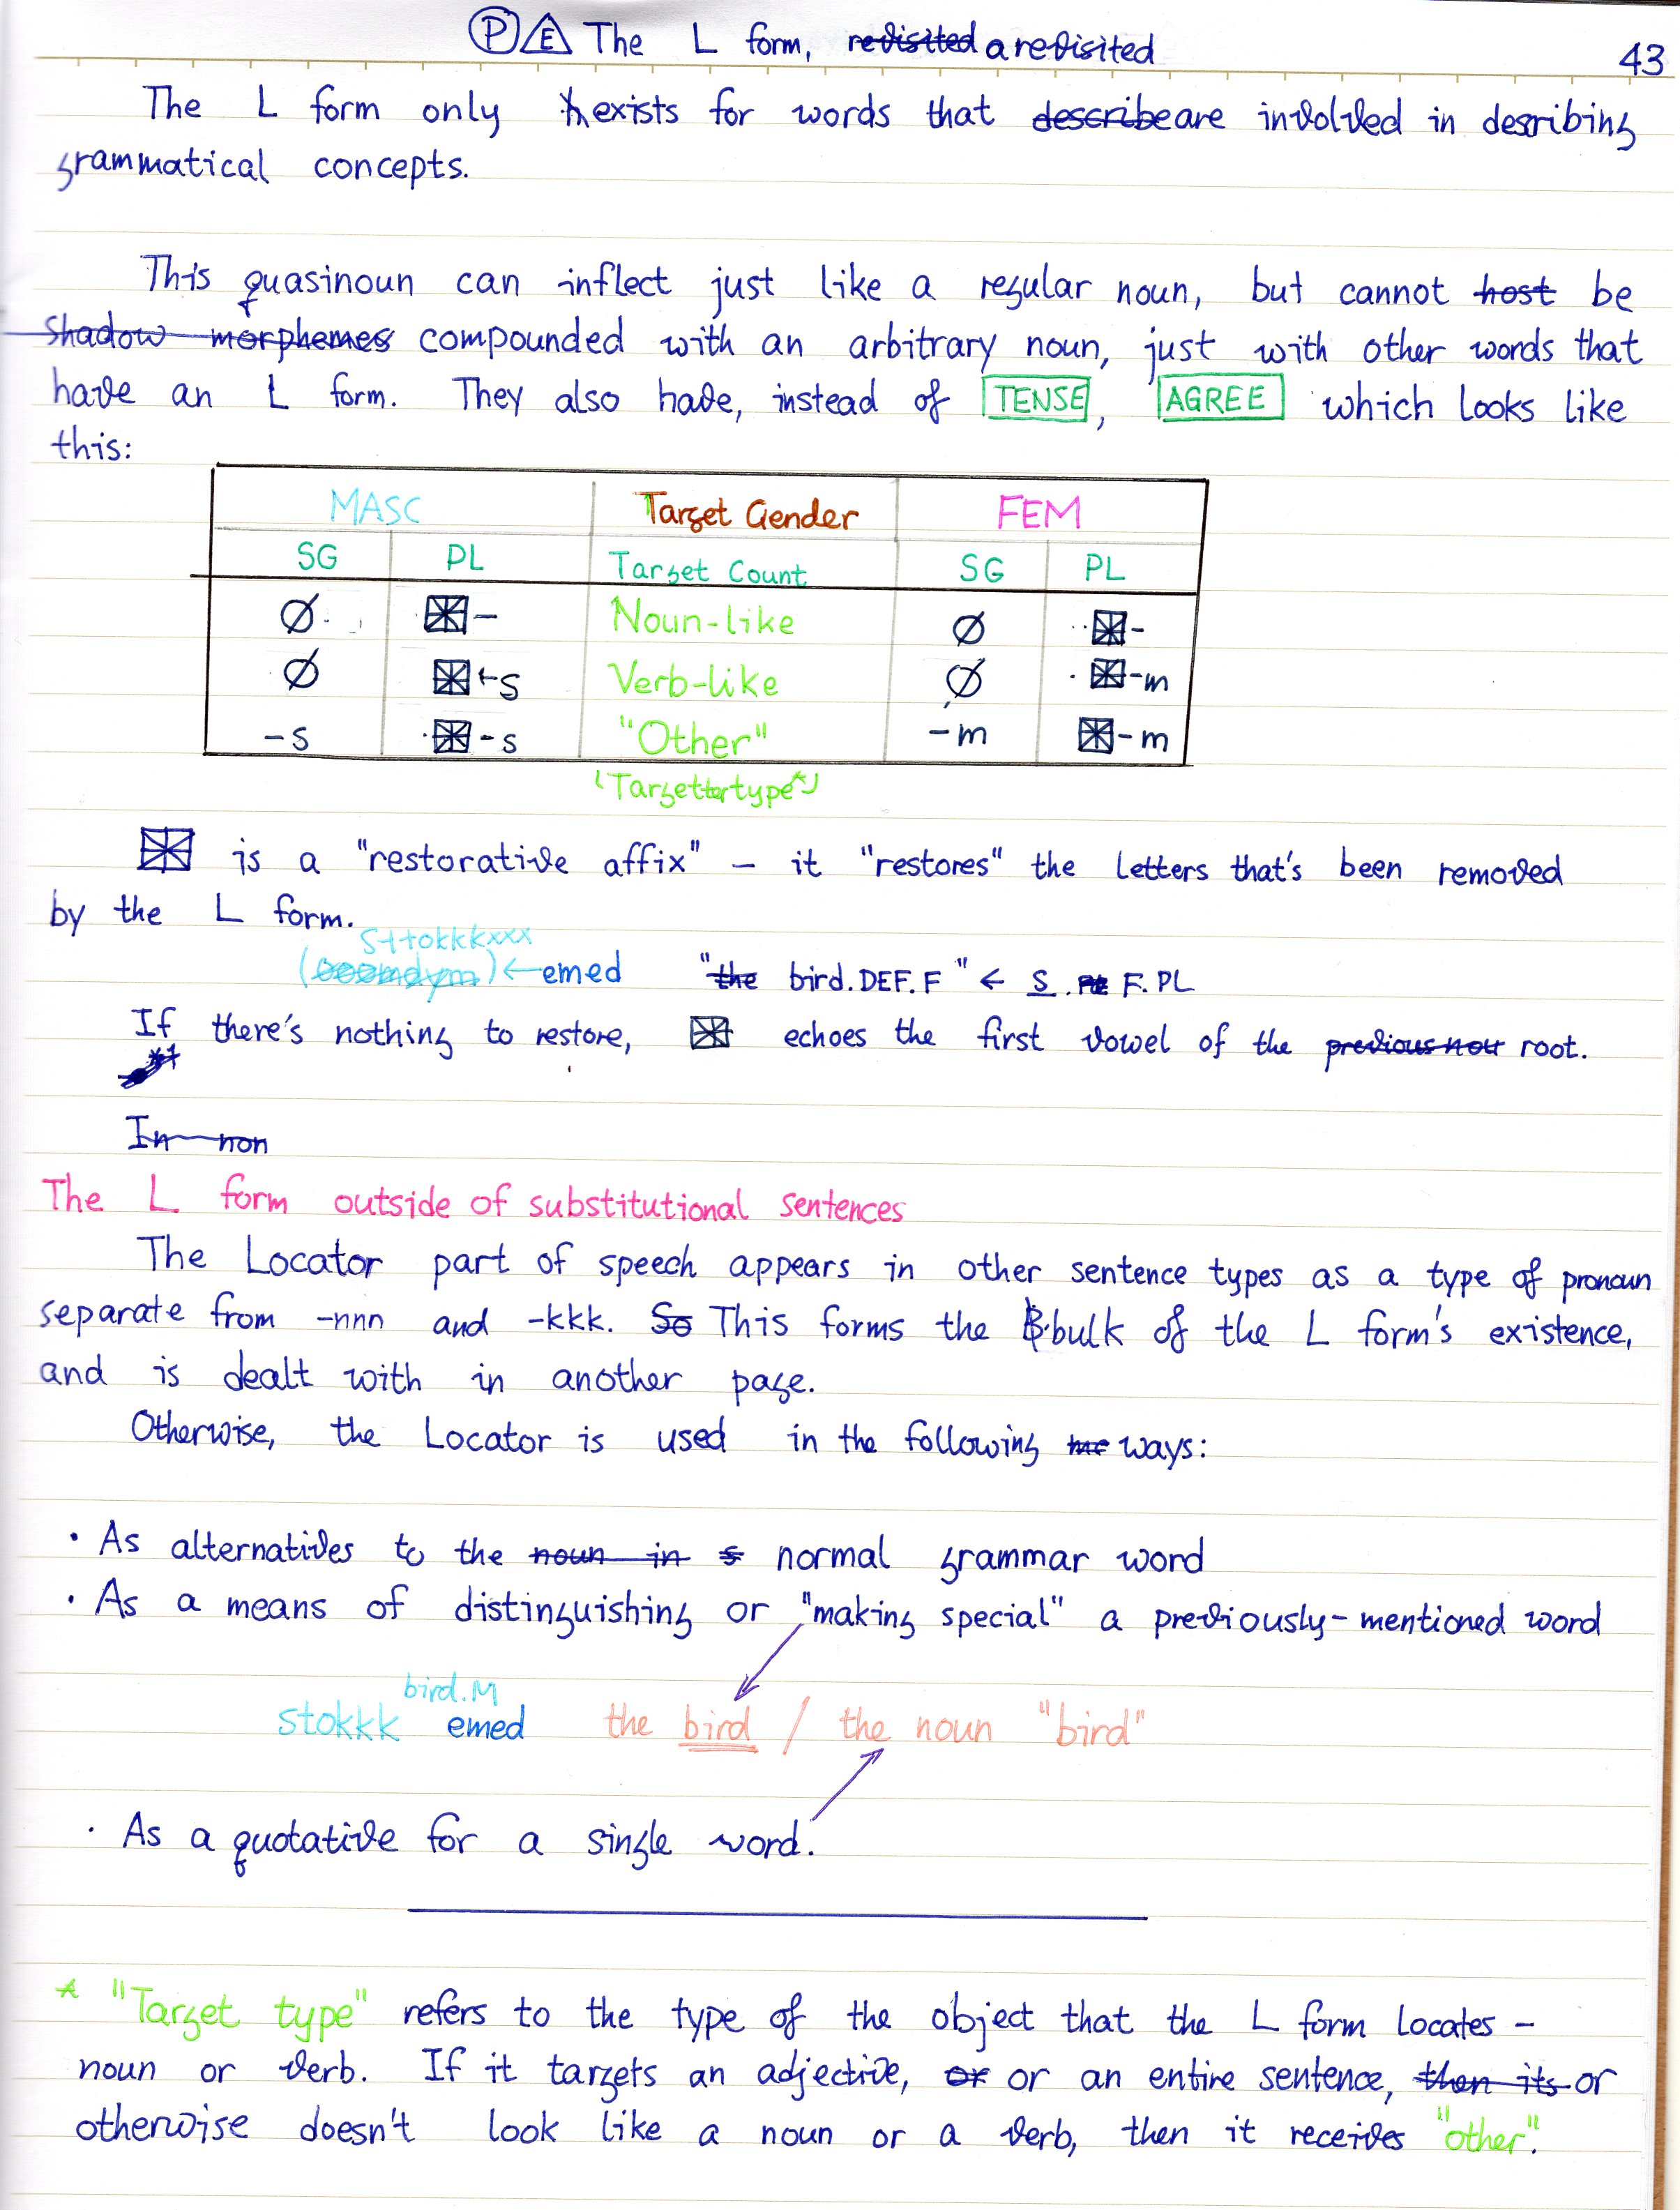 P E The L form, revisited a revisited
43
The L form only exists for words that describe are involved in describing
grammatical concepts.
This quasinoun can inflect just like a regular noun, but cannot host be
shadow morphemes compounded with an arbitrary noun, just with other words that
have an L form. They also have, instead of TENSE, AGREE which looks like
this:
MASC Target Gender FEM
SG PL Target Count SG PL
∅ ⊠- Noun-like ∅ ⊠-
∅ ⊠-s Verb-like ∅ ⊠-m
-s ⊠-s "Other" -m ⊠-m
(Target type*)
⊠ is a "restorative affix" – it "restores" the letters that's been removed
by the L form.
sttokkkxxx
← emed "the bird.DEF.F" ← S. F.PL
If there's nothing to restore, ⊠ echoes the first vowel of the previous root.
In non
The L form outside of substitutional sentences
The Locator part of speech appears in other sentence types as a type of pronoun
separate from -nnn and -kkk. So This forms the bulk of the L form's existence,
and is dealt with in another page.
Otherwise, the Locator is used in the following ways:
· As alternatives to the noun in s normal grammar word
· As a means of distinguishing or "making special" a previously-mentioned word
bird.M
stokkk emed the bird / the noun "bird"
· As a quotative for a single word.
* "Target type" refers to the type of the object that the L form locates –
noun or verb. If it targets an adjective, or or an entire sentence, then its or
otherwise doesn't look like a noun or a verb, then it receives "other".